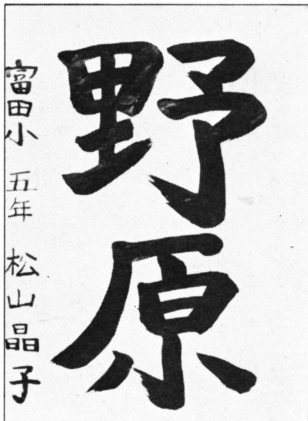 野原
富田小 五年 松山晶子